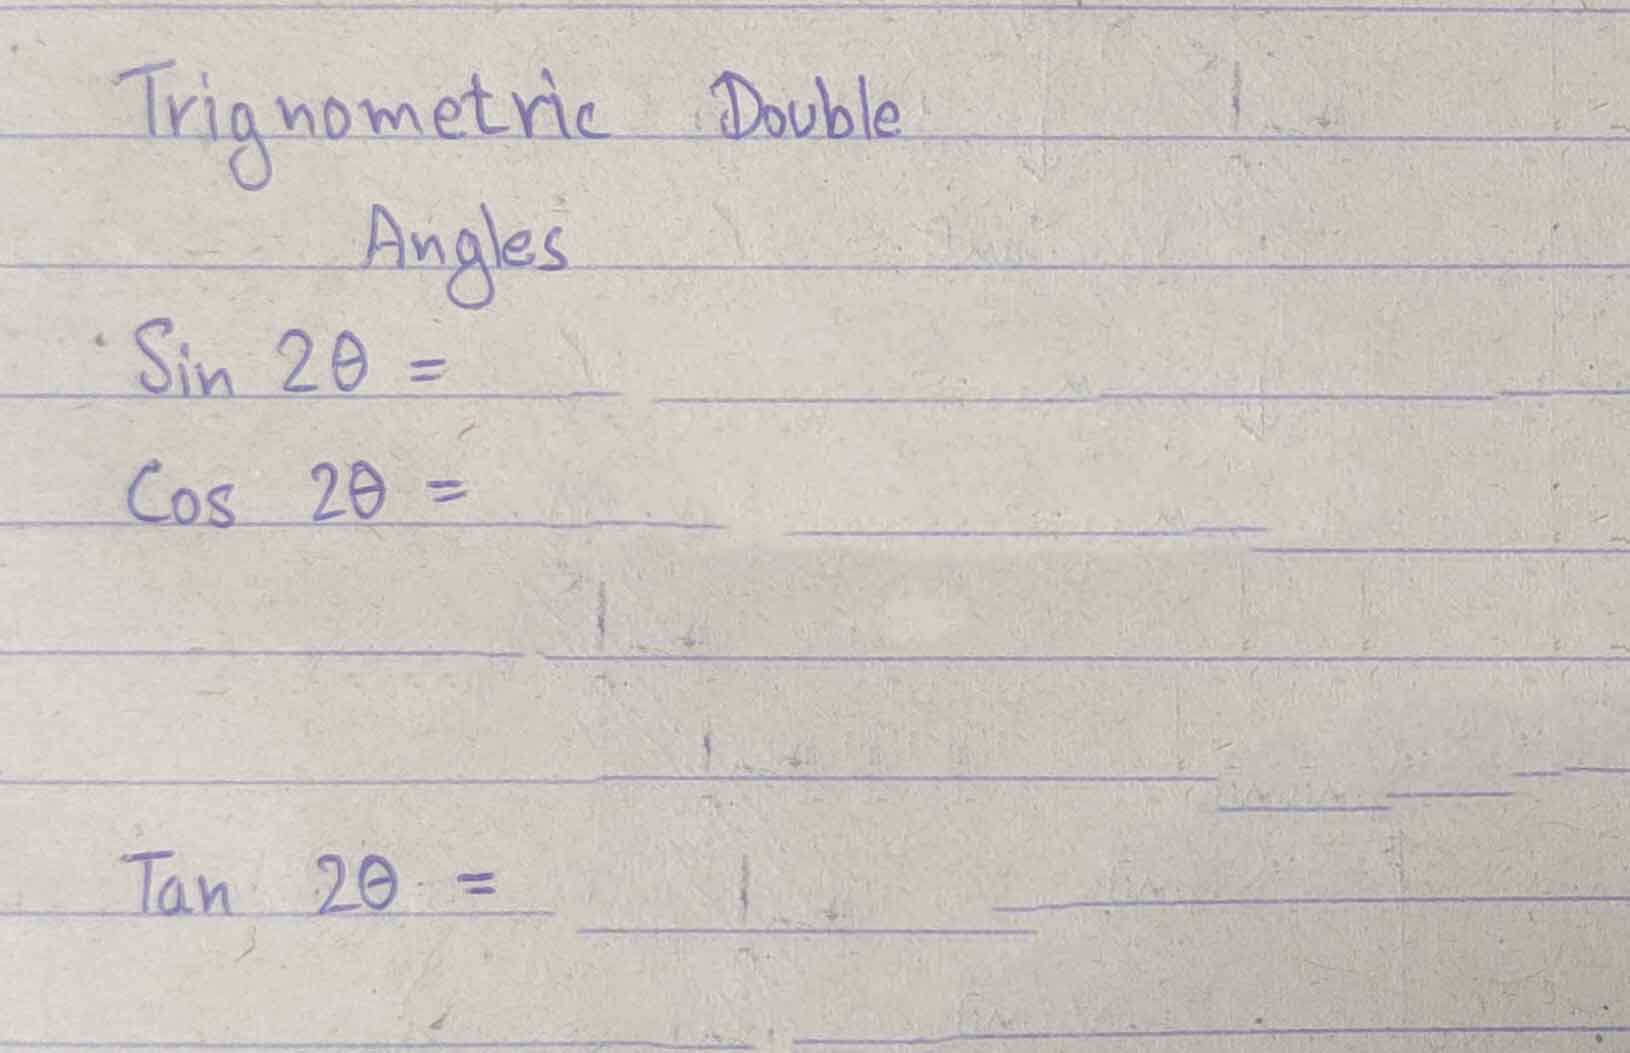 Trignometric Double
Angles
Sin 2θ =
Cos 2θ =
Tan 2θ =